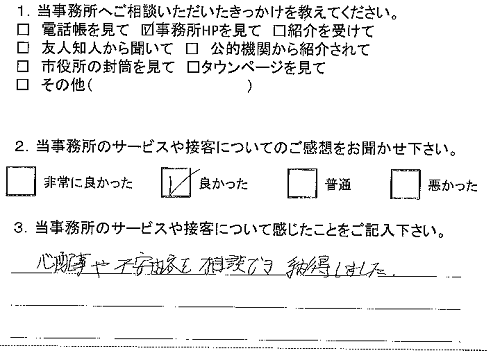 1. 当事務所へご相談いただいたきっかけを教えてください。
□ 電話帳を見て ☑事務所HPを見て □紹介を受けて
□ 友人知人から聞いて □ 公的機関から紹介されて
□ 市役所の封筒を見て □タウンページを見て
□ その他( )
2. 当事務所のサービスや接客についてのご感想をお聞かせ下さい。
□ 非常に良かった ☑ 良かった □ 普通 □ 悪かった
3. 当事務所のサービスや接客について感じたことをご記入下さい。
心配事や不安な点を相談でき 納得しました.